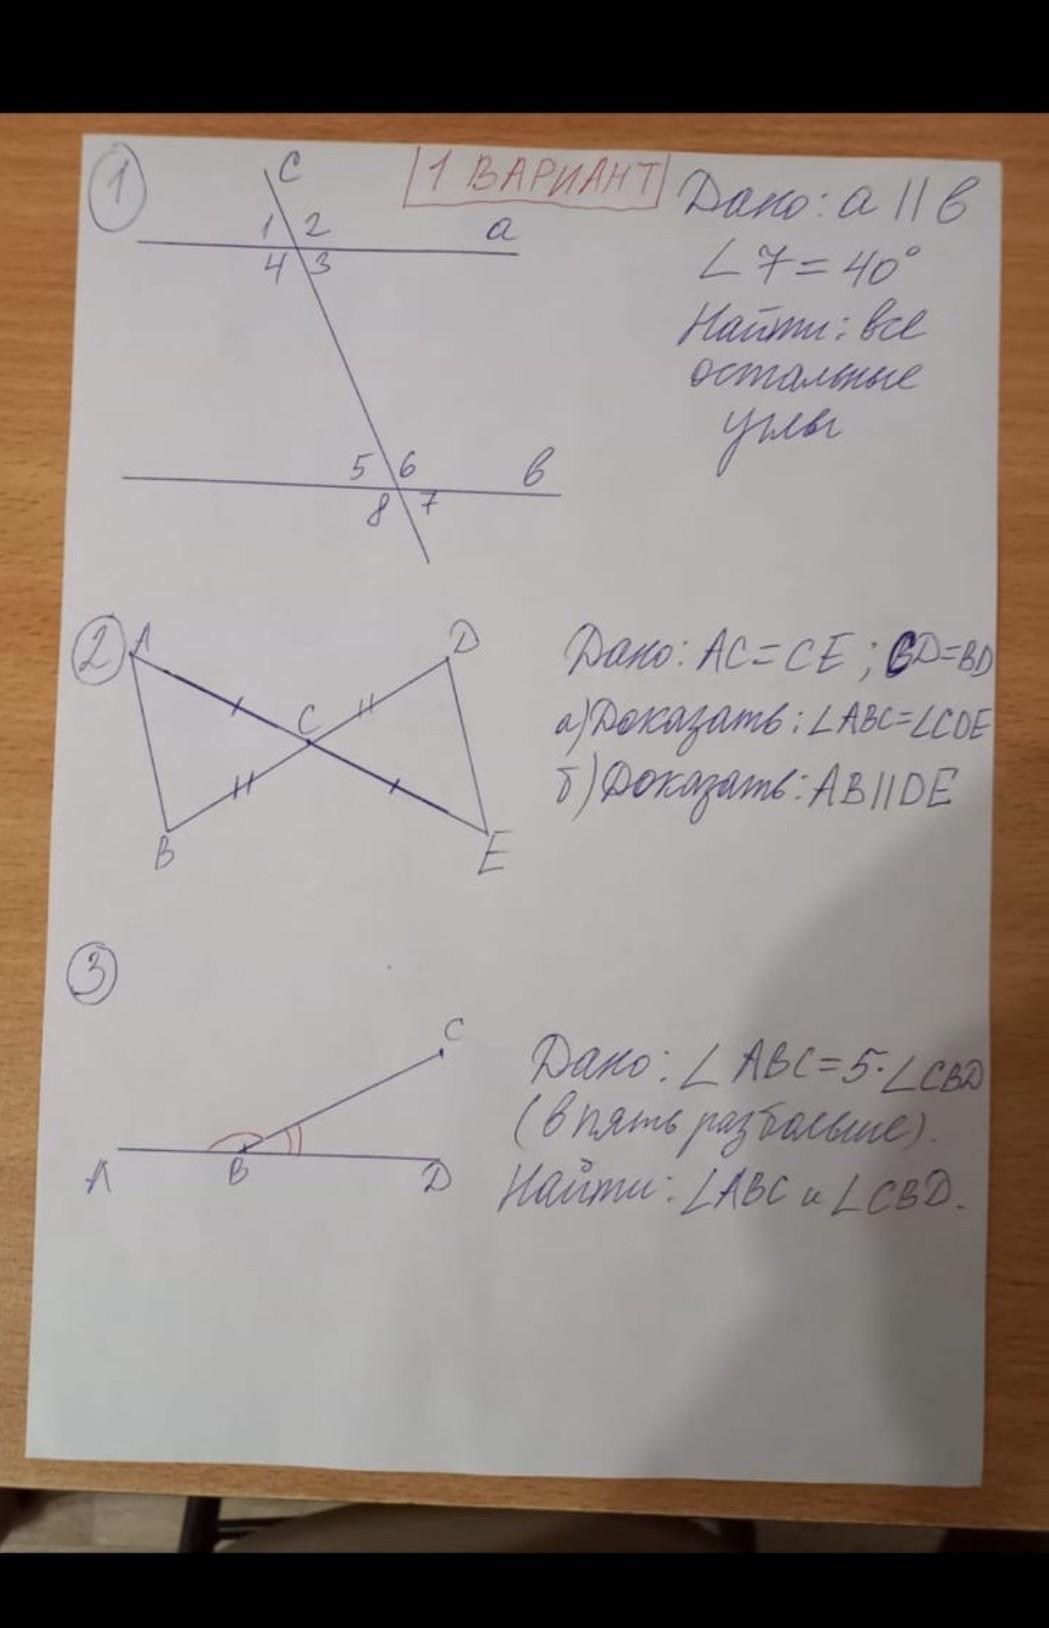 1
1 ВАРИАНТ
C
1 2
a
4 3
5 6
в
8 7
Дано: a || в
∠7 = 40°
Найти: все
остальные
углы
2
A
D
C
B
E
Дано: AC = CE ; CD=BD
а) Доказать: ∠ABC=∠CDE
б) Доказать: AB||DE
3
C
A
B
D
Дано: ∠ABC=5·∠CBD
(в пять раз больше).
Найти: ∠ABC и ∠CBD.